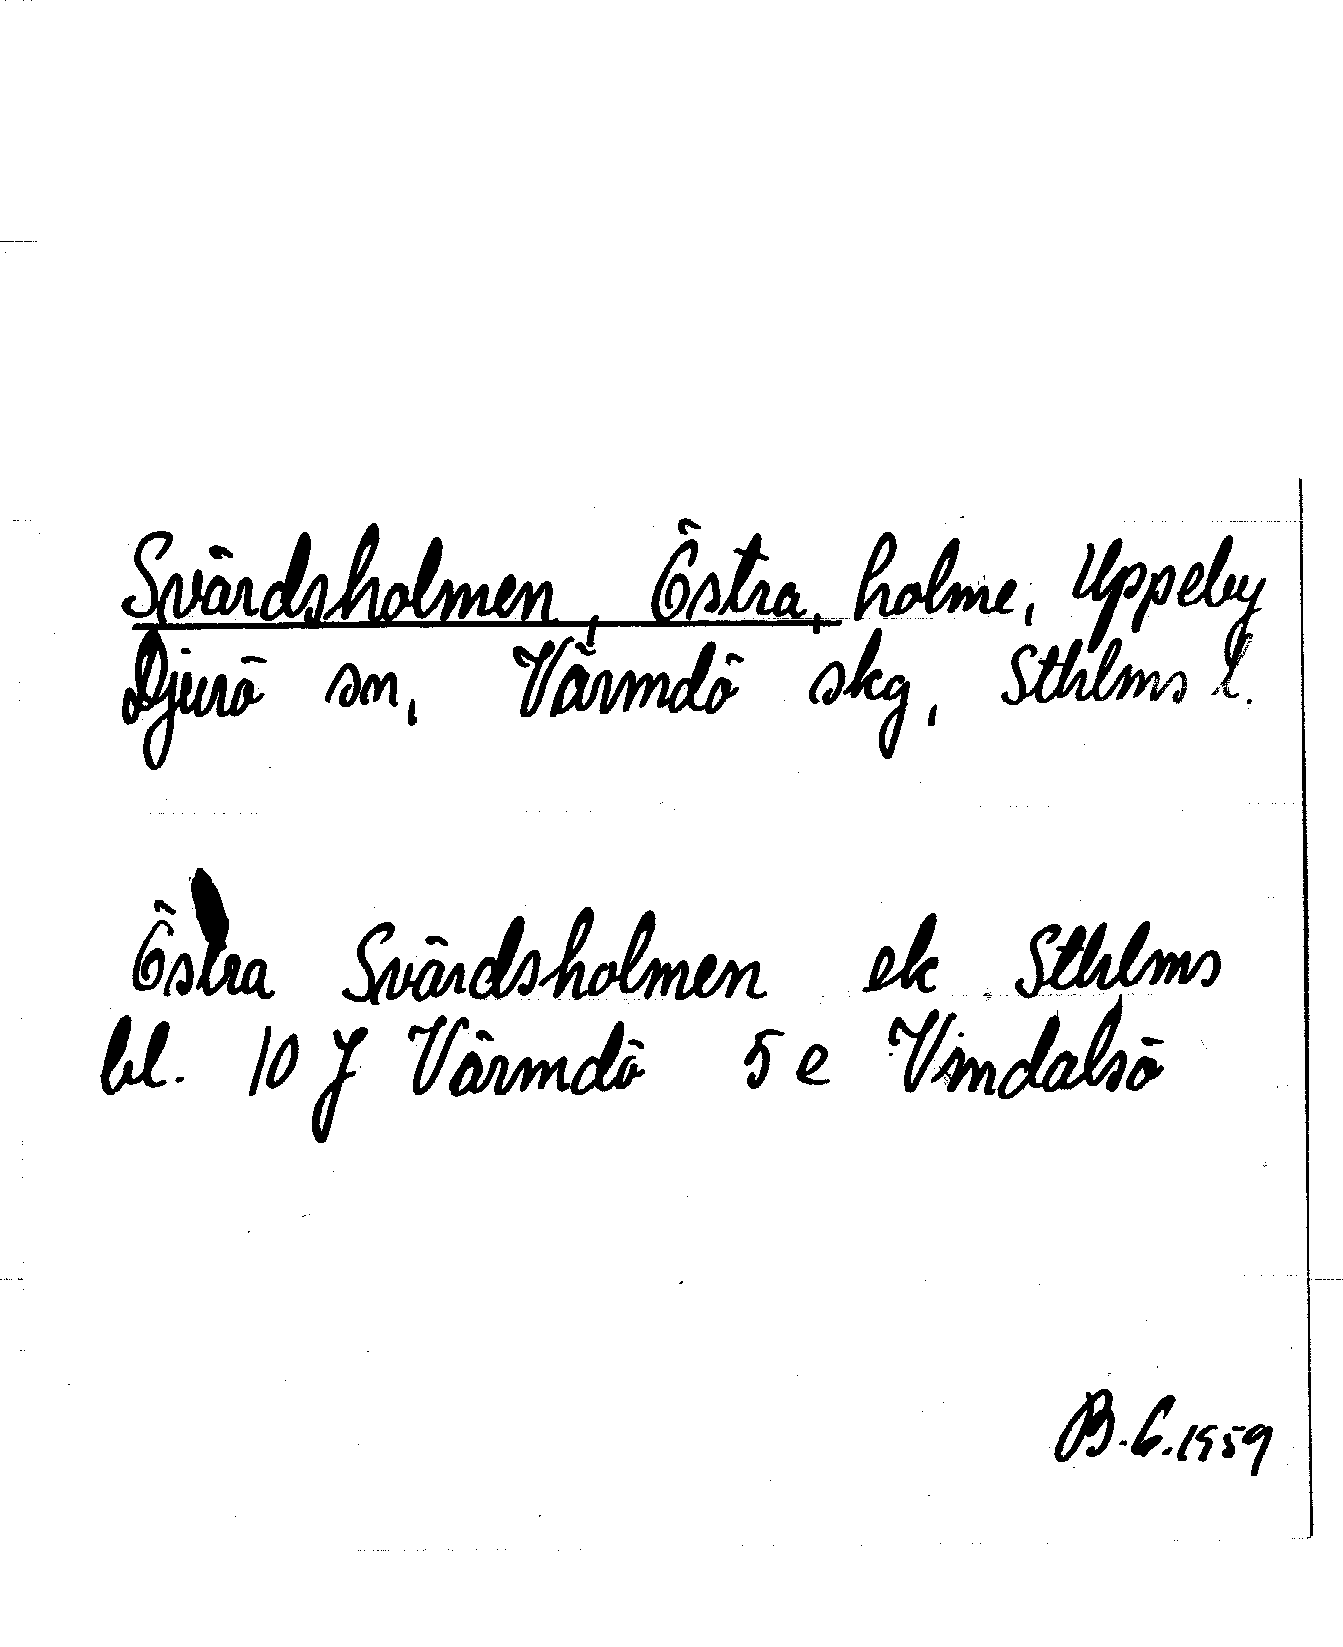 Svärdsholmen, Östra, holme, Uppeby
Djurö sn, Värmdö skg, Sthlms l.
Östra Svärdsholmen ek Sthlms
bl. 10 J Värmdö 5 e Vindalsö
B.G.1959